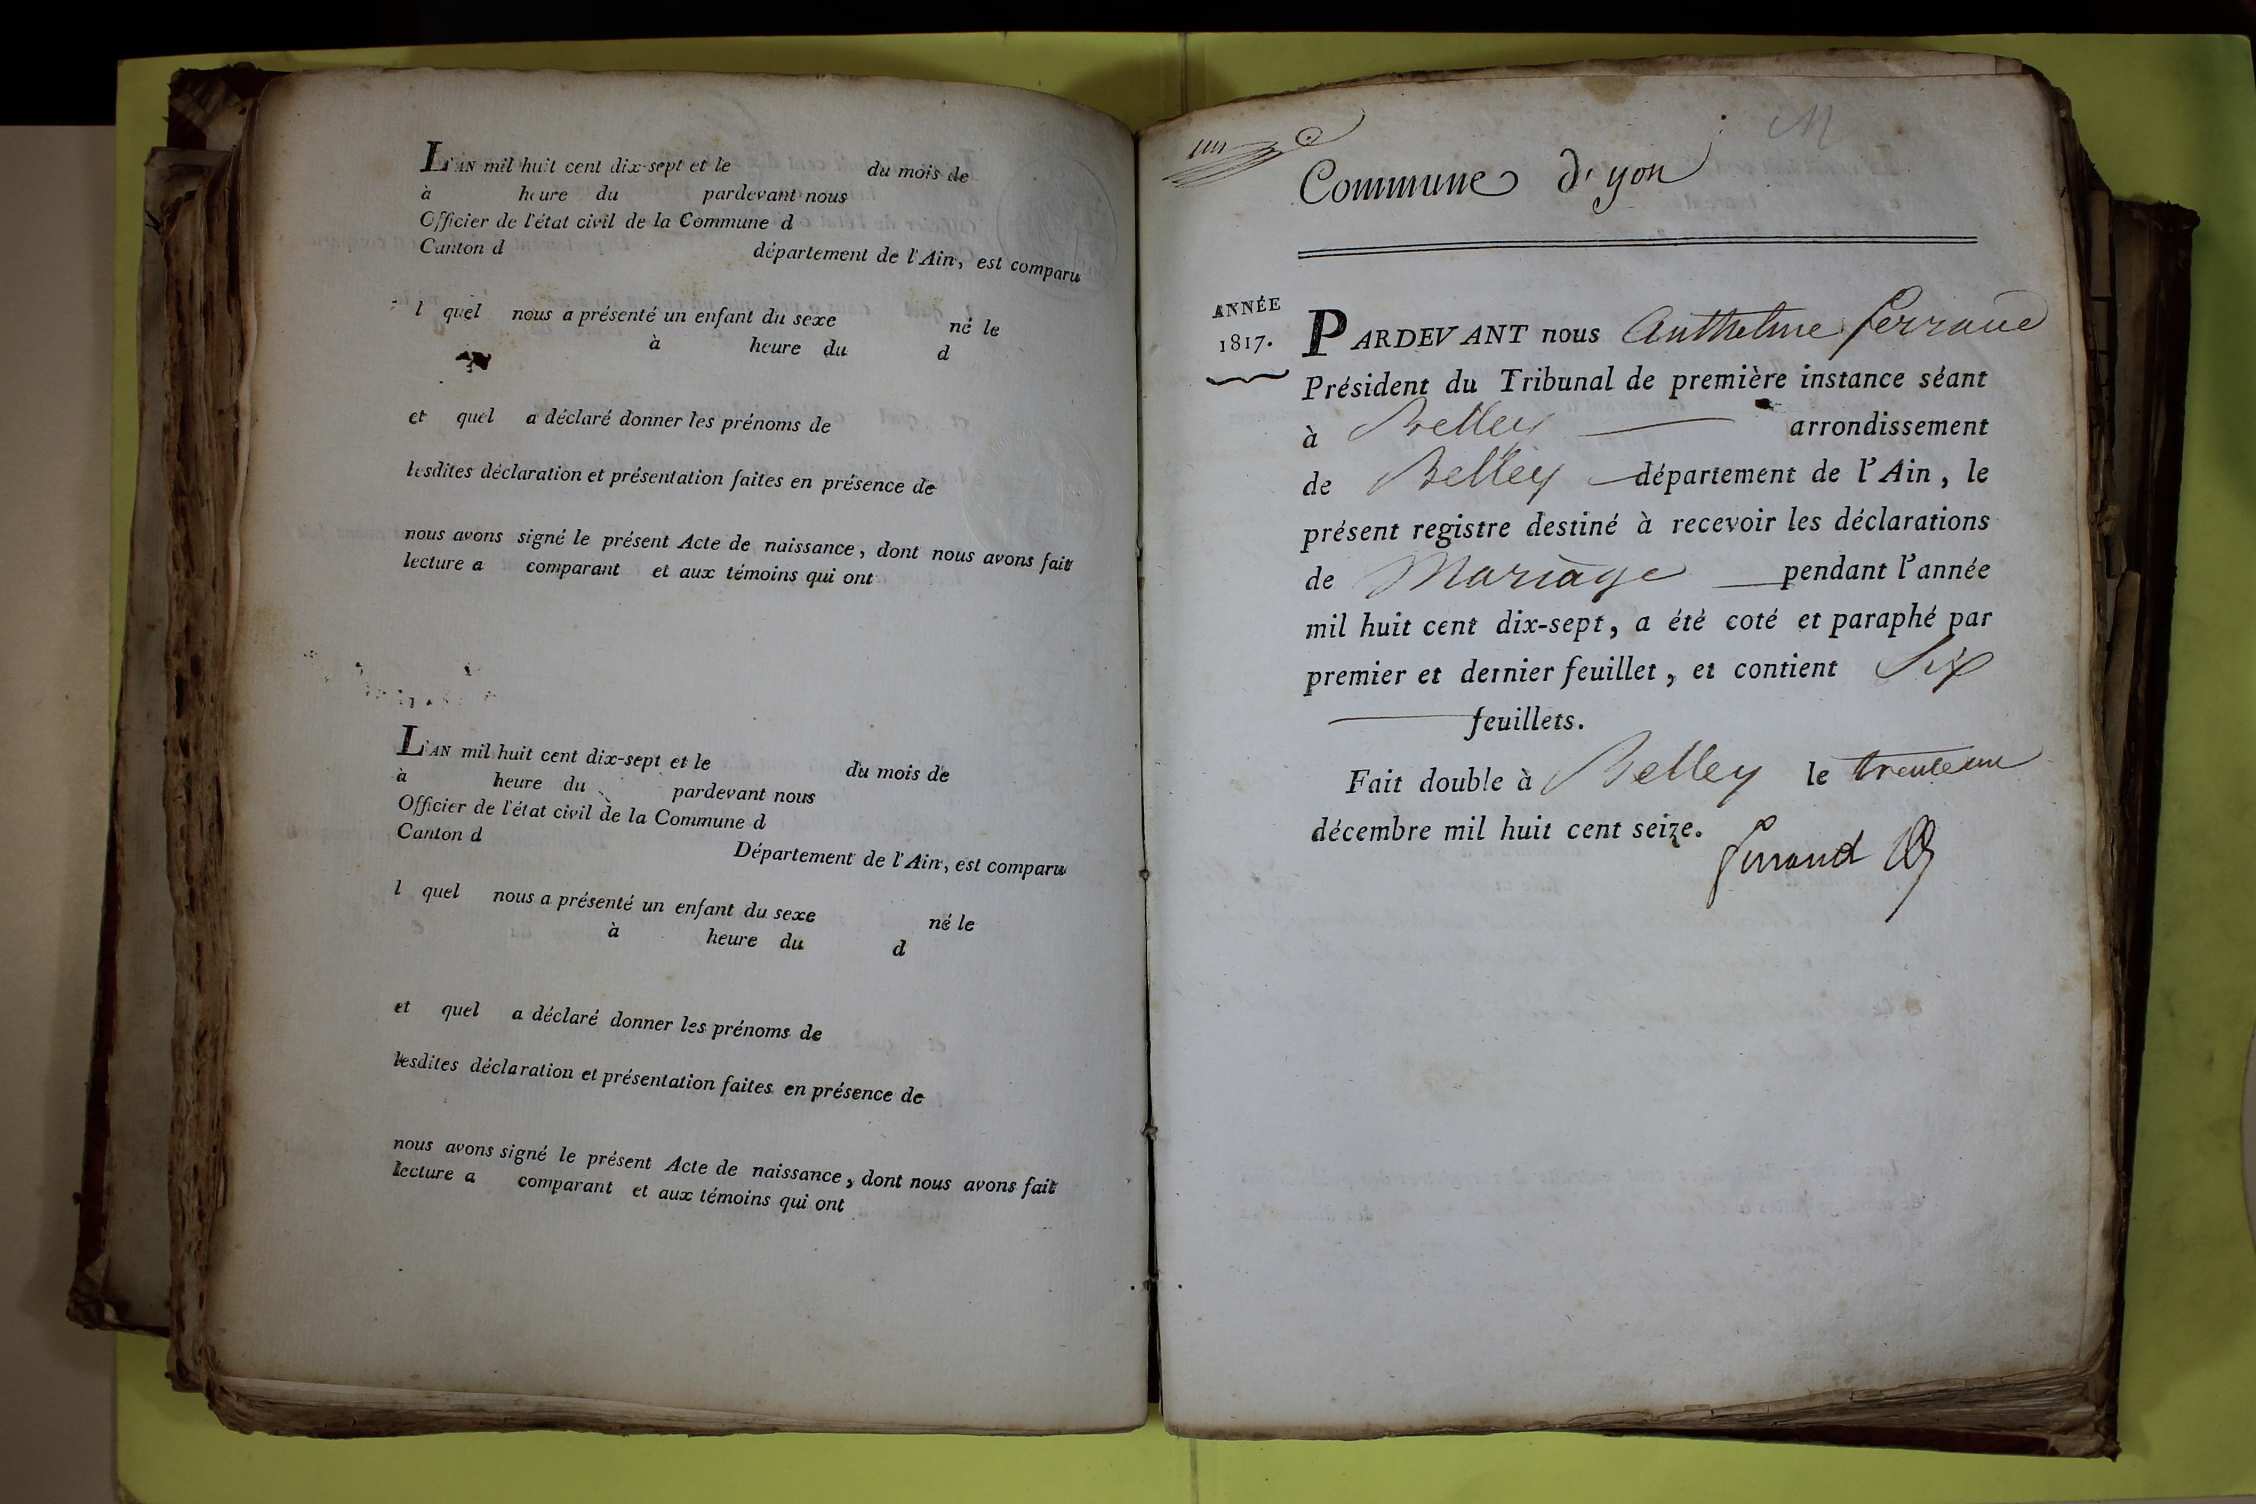 L'AN mil huit cent dix-sept et le du mois de
à heure du pardevant nous
Officier de l'état civil de la Commune d
Canton d département de l'Ain, est comparu
l quel nous a présenté un enfant du sexe né le
à heure du d
et quel a déclaré donner les prénoms de
lesdites déclaration et présentation faites en présence de
nous avons signé le présent Acte de naissance, dont nous avons fait
lecture a comparant et aux témoins qui ont
L'AN mil huit cent dix-sept et le du mois de
à heure du pardevant nous
Officier de l'état civil de la Commune d
Canton d Département de l'Ain, est comparu
l quel nous a présenté un enfant du sexe né le
à heure du d
et quel a déclaré donner les prénoms de
lesdites déclaration et présentation faites en présence de
nous avons signé le présent Acte de naissance, dont nous avons fait
lecture a comparant et aux témoins qui ont
M
Commune d'yon
ANNÉE
1817.
PARDEVANT nous Anthelme ferrand
Président du Tribunal de première instance séant
à Belley arrondissement
de Belley département de l'Ain, le
présent registre destiné à recevoir les déclarations
de Mariage pendant l'année
mil huit cent dix-sept, a été coté et paraphé par
premier et dernier feuillet, et contient Six
feuillets.
Fait double à Belley le trente un
décembre mil huit cent seize.
ferrand